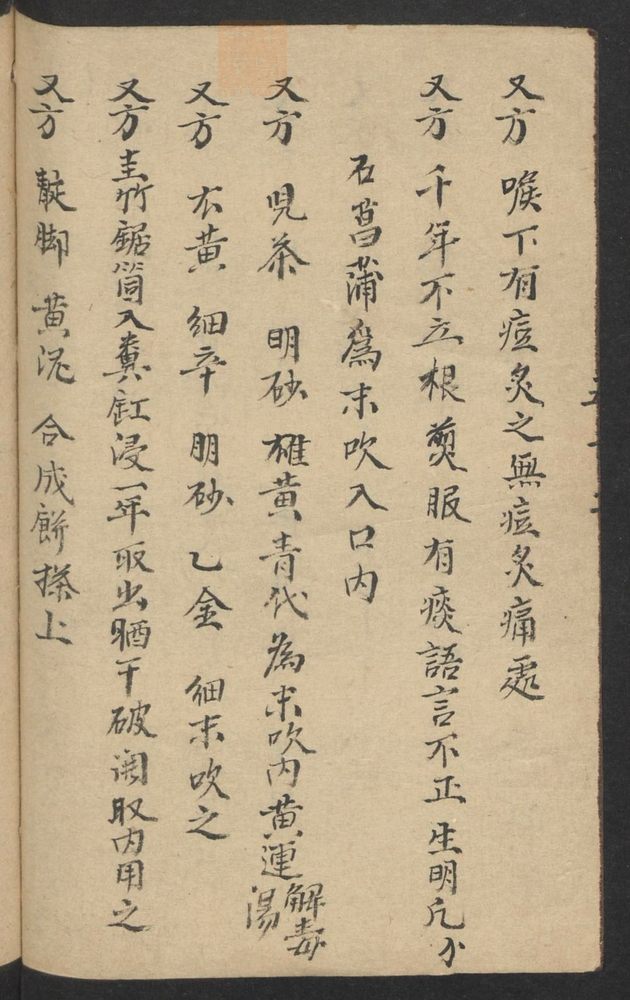 又方 喉下有痘炙之無痘炙痛處
又方 千年不立根煎服有痰語言不正生明凡少
石菖蒲為末吹入口内
又方 児茶 明砂 雄黄青代為末吹内黄連解毒湯
又方 大黄 細辛 朋砂 乙金 細末吹之
又方圭竹鋸筒入糞缸浸一年取出晒干破開取内用之
又方 靛脚 黄泥 合成餅搽上